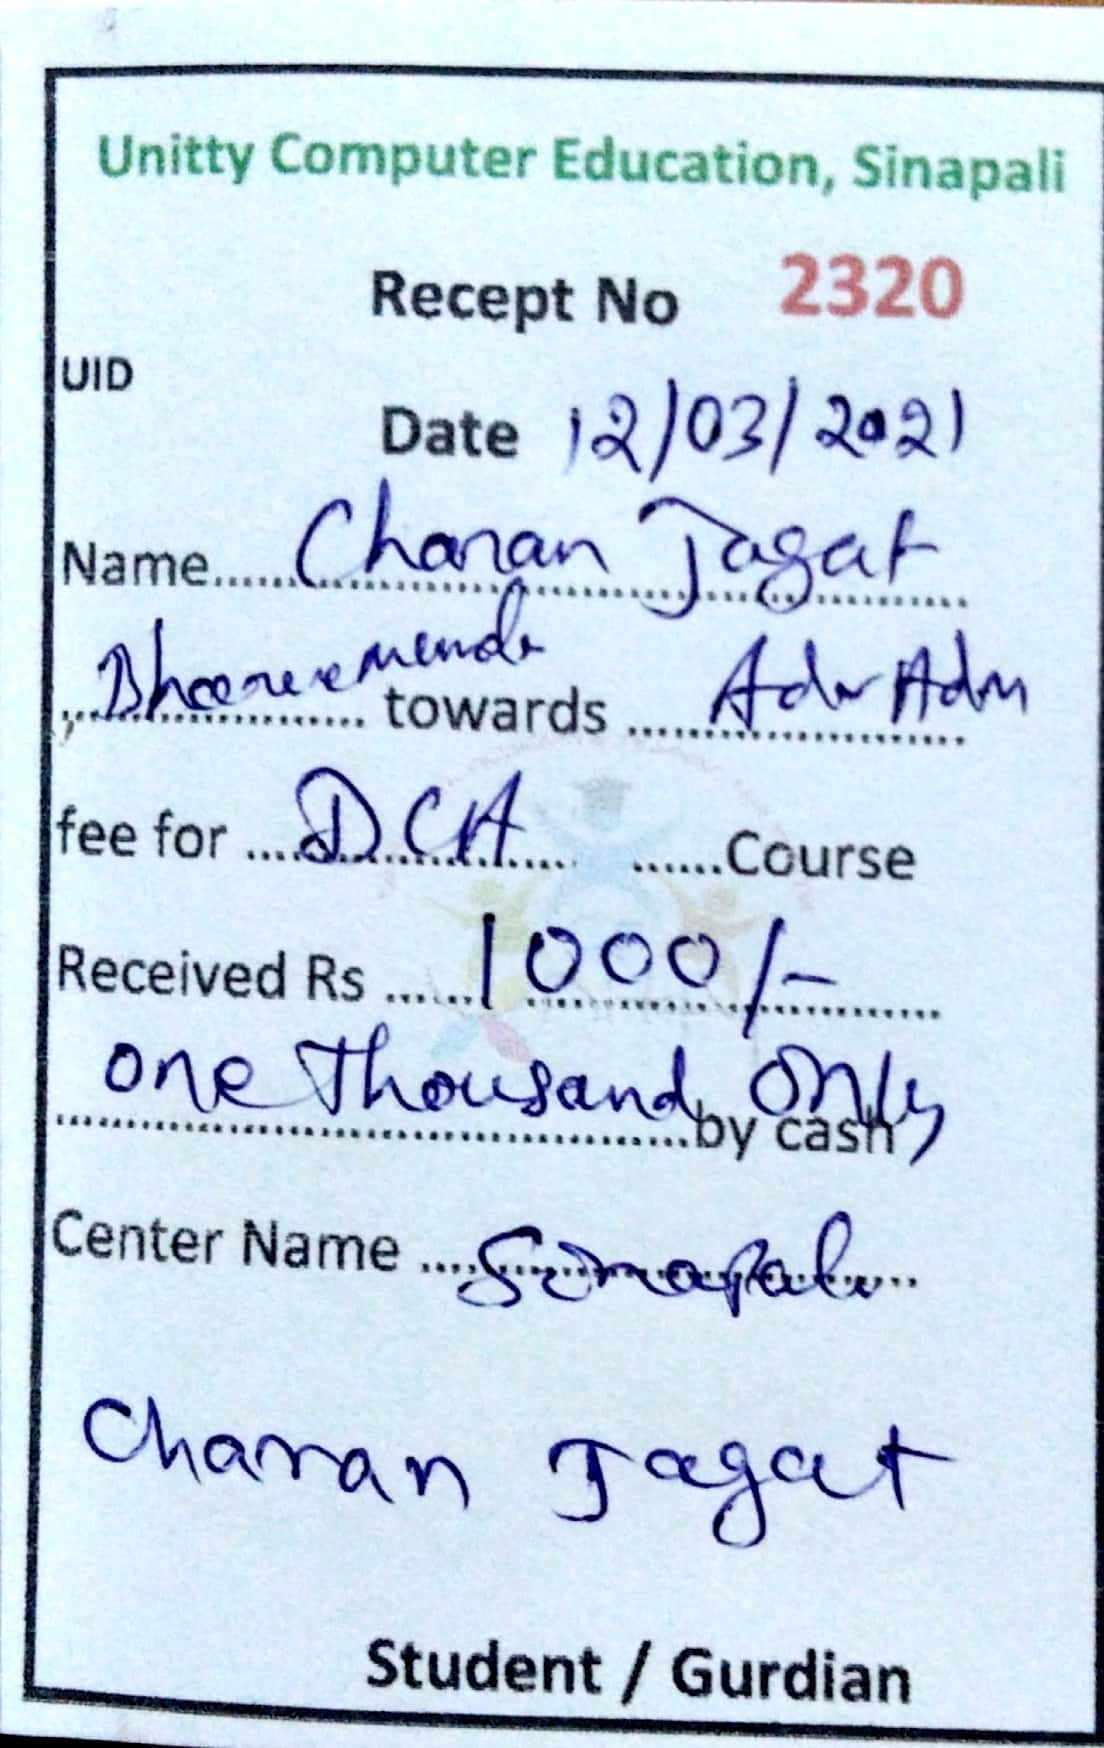 Unitty Computer Education, Sinapali
Recept No 2320
UID
Date 12/03/2021
Name...... Charan Jagat
, ............... towards ...... Adm
fee for .... DCA ....... Course
Received Rs ...... 1000/-
one Thousand Only
by cash
Center Name .... Sinapali
Charan Jagat
Student / Gurdian